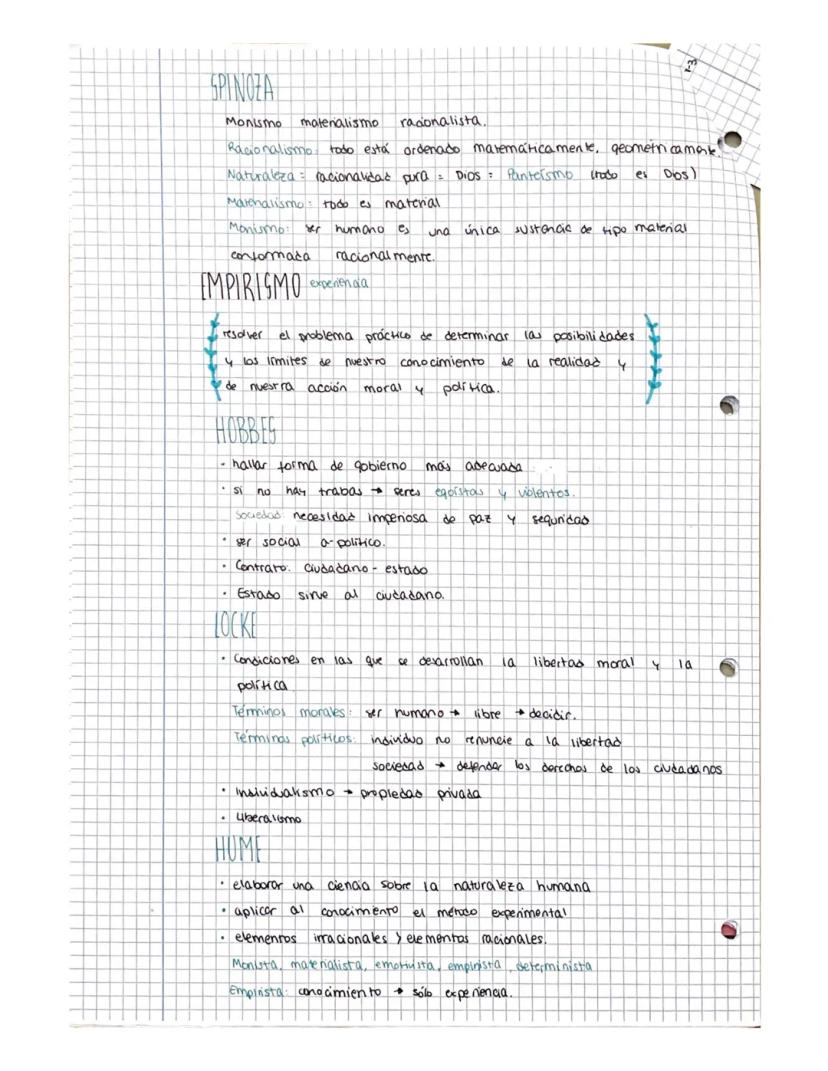 SPINOZA
Monismo materialismo racionalista.
Racionalismo: todo está ordenado matemáticamente, geométricamente.
Naturaleza = racionalidad pura = Dios = Panteísmo (todo es Dios)
Materialismo: todo es material
Monismo: ser humano es una única sustancia de tipo material
conformada racionalmente.
EMPIRISMO experiencia
resolver el problema práctico de determinar las posibilidades
y los límites de nuestro conocimiento de la realidad y
de nuestra acción moral y política.
HOBBES
- hallar forma de gobierno más adecuada
· si no hay trabas → seres egoístas y violentos.
Sociedad: necesidad imperiosa de paz y seguridad
· ser social a-político.
· Contrato: ciudadano - estado
· Estado sirve al ciudadano.
LOCKE
· Condiciones en las que se desarrollan la libertad moral y la
política
Términos morales: ser humano → libre → decidir.
Términos políticos: individuo no renuncie a la libertad
sociedad → defender los derechos de los ciudadanos
· Individualismo → propiedad privada
· Liberalismo
HUME
· elaborar una ciencia sobre la naturaleza humana
· aplicar al conocimiento el método experimental
· elementos irracionales y elementos racionales.
Monista, materialista, emotivista, empirista, determinista
Empirista: conocimiento → sólo experiencia.